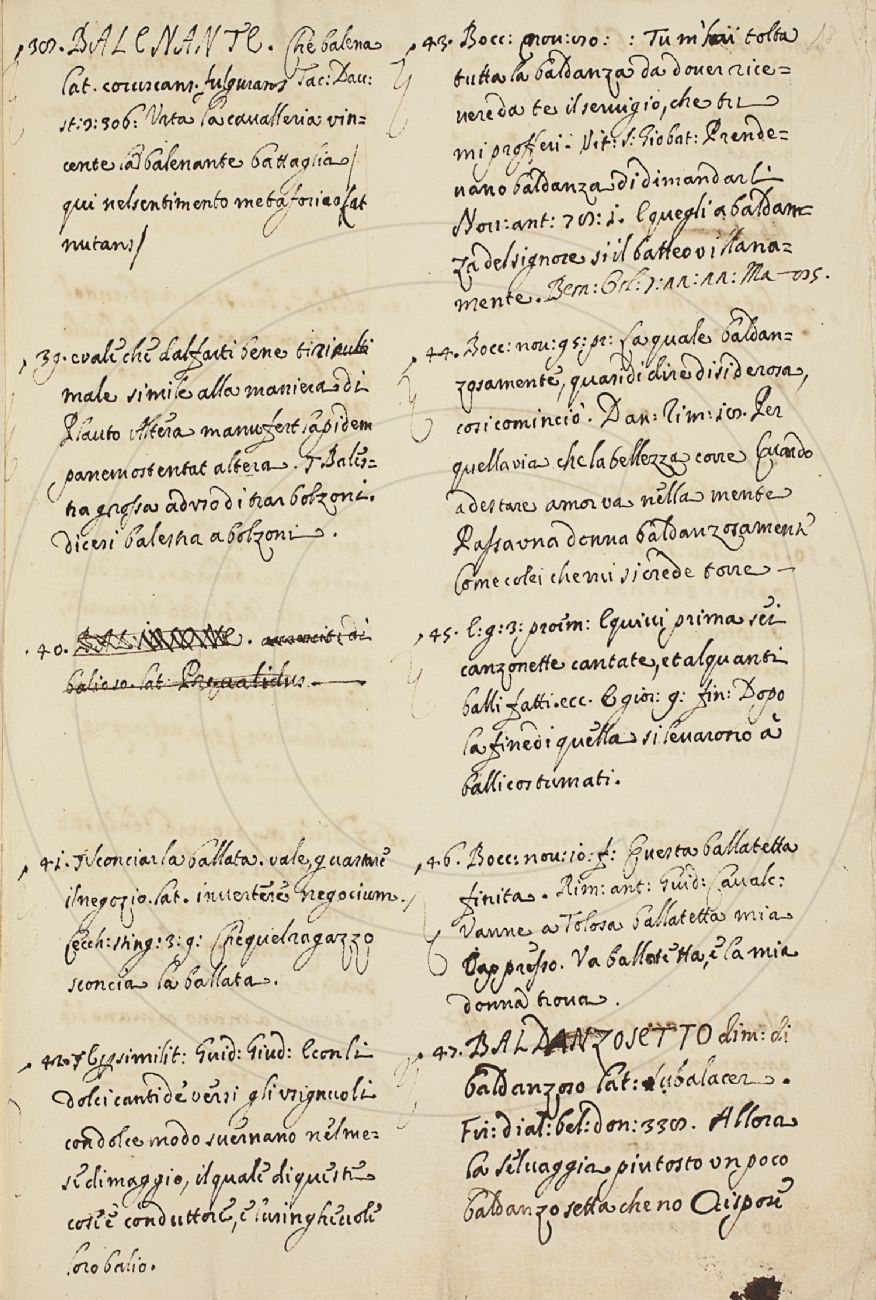 38. BALENANTE. Che balena
lat. coruscans, fulgurans Tac: Dav:
st: 3: 306: Urta la cavalleria vin=
cente la balenante battaglia/
qui nel sentimento metaforico lat
nutans/
39. e vale che dal farti bene ti risulti
male simile alla maniera di
Plauto Altera manu fert lapidem
panem ostentat altera. Bales=
tra grossa ad uso di trar bolzoni.
dicesi balestra a bolzoni.
40.
balioso. lat.
41. Sconciar la ballata. vale, guastare
il negozio. lat. invertere negocium.
Cecch: sting: 3: 9: Che quel ragazzo
sconcia la ballata.
42. similit: Guid: Giud: E con li
dolci canti de versi gli usignuoli
con dolce modo svernano nel me=
se di maggio, il quale di queste
cose è conduttore, e lusinghevole
loro balio.
43. Bocc: nov: : Tu m'hai tolta
tutta la baldanza da dover rice=
vere da te il servigio, che tu
mi profferi. Vit: S: Gio bat: Prende=
vano baldanza di dimandarli
Nov: ant: E quegli a baldan=
za del signore si il batteo villana=
mente. Bem:
44. Bocc: nov: 95: pr: La quale baldan=
zosamente, quasi di dire disiderosa,
cosi cominciò. Dan: Rim: Per
quella via che la bellezza corre Quando
a destare amor va nella mente
Passa una donna baldanzosamente
Come colei che mi si crede torre
45. E: g: 3: proem: E quivi prima sei
canzonette cantate, et alquanti
balli fatti. ecc. E gior: 9: fin: Dopo
la fine di quella si levarono a
balli costumati.
46. Bocc: nov: 10: f: Questa ballatetta
finita. Rim: ant: Guid: Cavalc:
Vanne a Tolosa ballatetta mia
E appresso. Va ballatetta, e la mia
donna trova.
47. BALDANZOSETTO dim: di
baldanzoso lat: subalacer.
Fir: dial: bel: don: 338. Allora
la selvaggia piutosto un poco
baldanzosetta che no Rispose